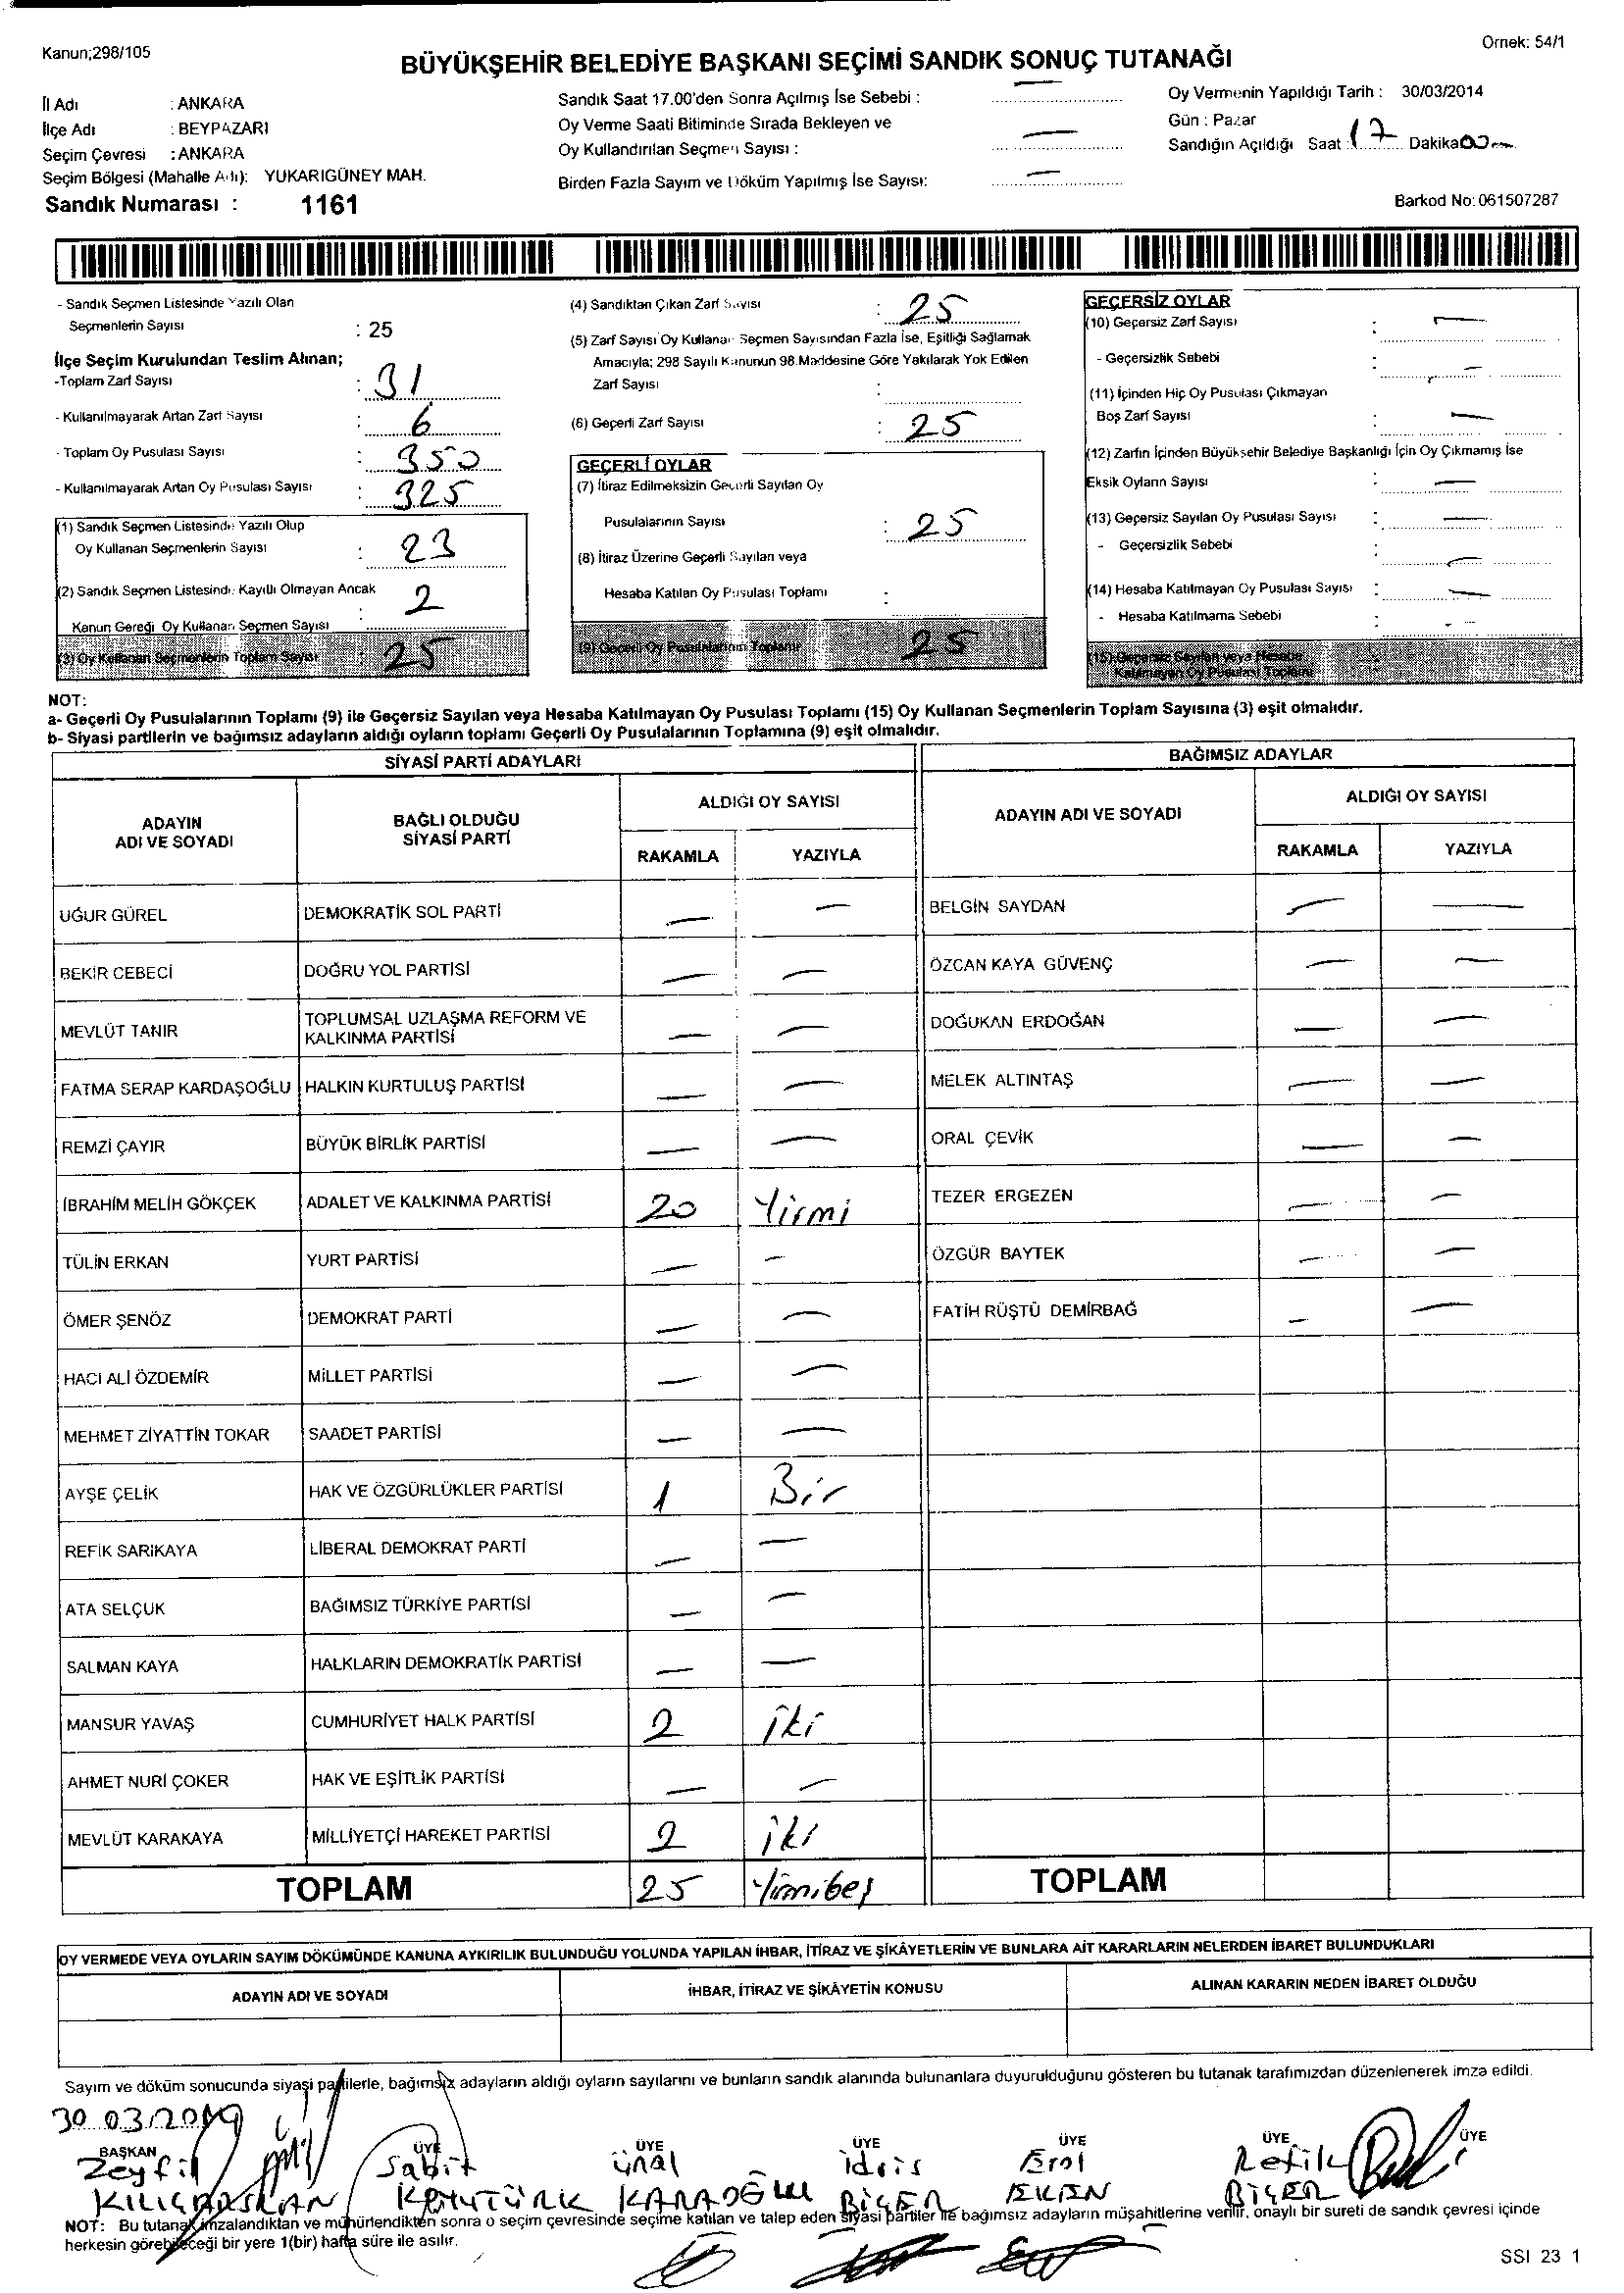 Kanun;298/105
Örnek: 54/1
BÜYÜKŞEHİR BELEDİYE BAŞKANI SEÇİMİ SANDIK SONUÇ TUTANAĞI
İl Adı : ANKARA
İlçe Adı : BEYPAZARI
Seçim Çevresi : ANKARA
Seçim Bölgesi (Mahalle Adı): YUKARIGÜNEY MAH.
Sandık Numarası : 1161
Sandık Saat 17.00'den Sonra Açılmış İse Sebebi : —
Oy Verme Saati Bitiminde Sırada Bekleyen ve
Oy Kullandırılan Seçmen Sayısı : —
Birden Fazla Sayım ve Döküm Yapılmış İse Sayısı: —
Oy Vermenin Yapıldığı Tarih : 30/03/2014
Gün : Pazar
Sandığın Açıldığı Saat : 17 Dakika 00
Barkod No: 061507287
- Sandık Seçmen Listesinde Yazılı Olan
Seçmenlerin Sayısı : 25
İlçe Seçim Kurulundan Teslim Alınan;
-Toplam Zarf Sayısı : 31
- Kullanılmayarak Artan Zarf Sayısı : 6
- Toplam Oy Pusulası Sayısı : 350
- Kullanılmayarak Artan Oy Pusulası Sayısı : 325
(1) Sandık Seçmen Listesinde Yazılı Olup
Oy Kullanan Seçmenlerin Sayısı : 23
(2) Sandık Seçmen Listesinde Kayıtlı Olmayan Ancak
Kanun Gereği Oy Kullanan Seçmen Sayısı : 2
(3) Oy Kullanan Seçmenlerin Toplam Sayısı : 25
(4) Sandıktan Çıkan Zarf Sayısı : 25
(5) Zarf Sayısı Oy Kullanan Seçmen Sayısından Fazla İse, Eşitliği Sağlamak
Amacıyla; 298 Sayılı Kanunun 98.Maddesine Göre Yakılarak Yok Edilen
Zarf Sayısı :
(6) Geçerli Zarf Sayısı : 25
GEÇERLİ OYLAR
(7) İtiraz Edilmeksizin Geçerli Sayılan Oy
Pusulalarının Sayısı : 25
(8) İtiraz Üzerine Geçerli Sayılan veya
Hesaba Katılan Oy Pusulası Toplamı :
(9) Geçerli Oy Pusulalarının Toplamı 25
GEÇERSİZ OYLAR
(10) Geçersiz Zarf Sayısı : —
- Geçersizlik Sebebi : —
(11) İçinden Hiç Oy Pusulası Çıkmayan
Boş Zarf Sayısı : —
(12) Zarfın İçinden Büyükşehir Belediye Başkanlığı İçin Oy Çıkmamış İse
Eksik Oyların Sayısı : —
(13) Geçersiz Sayılan Oy Pusulası Sayısı : —
- Geçersizlik Sebebi : —
(14) Hesaba Katılmayan Oy Pusulası Sayısı : —
- Hesaba Katılmama Sebebi : —
(15) Geçersiz Sayılan veya Hesaba
Katılmayan Oy Pusulası Toplamı :
NOT:
a- Geçerli Oy Pusulalarının Toplamı (9) ile Geçersiz Sayılan veya Hesaba Katılmayan Oy Pusulası Toplamı (15) Oy Kullanan Seçmenlerin Toplam Sayısına (3) eşit olmalıdır.
b- Siyasi partilerin ve bağımsız adayların aldığı oyların toplamı Geçerli Oy Pusulalarının Toplamına (9) eşit olmalıdır.
SİYASİ PARTİ ADAYLARI
ADAYIN ADI VE SOYADI BAĞLI OLDUĞU SİYASİ PARTİ ALDIĞI OY SAYISI
RAKAMLA YAZIYLA
UĞUR GÜREL DEMOKRATİK SOL PARTİ — —
BEKİR CEBECİ DOĞRU YOL PARTİSİ — —
MEVLÜT TANIR TOPLUMSAL UZLAŞMA REFORM VE KALKINMA PARTİSİ — —
FATMA SERAP KARDAŞOĞLU HALKIN KURTULUŞ PARTİSİ — —
REMZİ ÇAYIR BÜYÜK BİRLİK PARTİSİ — —
İBRAHİM MELİH GÖKÇEK ADALET VE KALKINMA PARTİSİ 20 Yirmi
TÜLİN ERKAN YURT PARTİSİ —
ÖMER ŞENÖZ DEMOKRAT PARTİ — —
HACI ALİ ÖZDEMİR MİLLET PARTİSİ — —
MEHMET ZİYATTİN TOKAR SAADET PARTİSİ — —
AYŞE ÇELİK HAK VE ÖZGÜRLÜKLER PARTİSİ 1 Bir
REFİK SARIKAYA LİBERAL DEMOKRAT PARTİ — —
ATA SELÇUK BAĞIMSIZ TÜRKİYE PARTİSİ — —
SALMAN KAYA HALKLARIN DEMOKRATİK PARTİSİ — —
MANSUR YAVAŞ CUMHURİYET HALK PARTİSİ 2 iki
AHMET NURİ ÇOKER HAK VE EŞİTLİK PARTİSİ — —
MEVLÜT KARAKAYA MİLLİYETÇİ HAREKET PARTİSİ 2 iki
TOPLAM 25 Yirmibeş
BAĞIMSIZ ADAYLAR
ADAYIN ADI VE SOYADI ALDIĞI OY SAYISI
RAKAMLA YAZIYLA
BELGİN SAYDAN — —
ÖZCAN KAYA GÜVENÇ — —
DOĞUKAN ERDOĞAN — —
MELEK ALTINTAŞ — —
ORAL ÇEVİK — —
TEZER ERGEZEN — —
ÖZGÜR BAYTEK — —
FATİH RÜŞTÜ DEMİRBAĞ — —
TOPLAM
OY VERMEDE VEYA OYLARIN SAYIM DÖKÜMÜNDE KANUNA AYKIRILIK BULUNDUĞU YOLUNDA YAPILAN İHBAR, İTİRAZ VE ŞİKAYETLERİN VE BUNLARA AİT KARARLARIN NELERDEN İBARET BULUNDUKLARI
ADAYIN ADI VE SOYADI İHBAR, İTİRAZ VE ŞİKAYETİN KONUSU ALINAN KARARIN NEDEN İBARET OLDUĞU
Sayım ve döküm sonucunda siyasi partilerle, bağımsız adayların aldığı oyların sayılarını ve bunların sandık alanında bulunanlara duyurulduğunu gösteren bu tutanak tarafımızdan düzenlenerek imza edildi.
30.03.2014
BAŞKAN ÜYE ÜYE ÜYE ÜYE ÜYE ÜYE
Sabit ünal idris Erol Refik
KILIÇARSLAN KENTÜRK KARAOĞLU BİÇER EKEN BİÇER
NOT: Bu tutanak imzalandıktan ve mühürlendikten sonra o seçim çevresinde seçime katılan ve talep eden siyasi partiler ile bağımsız adayların müşahitlerine verilir, onaylı bir sureti de sandık çevresi içinde
herkesin görebileceği bir yere 1(bir) hafta süre ile asılır.
SSI 23 1